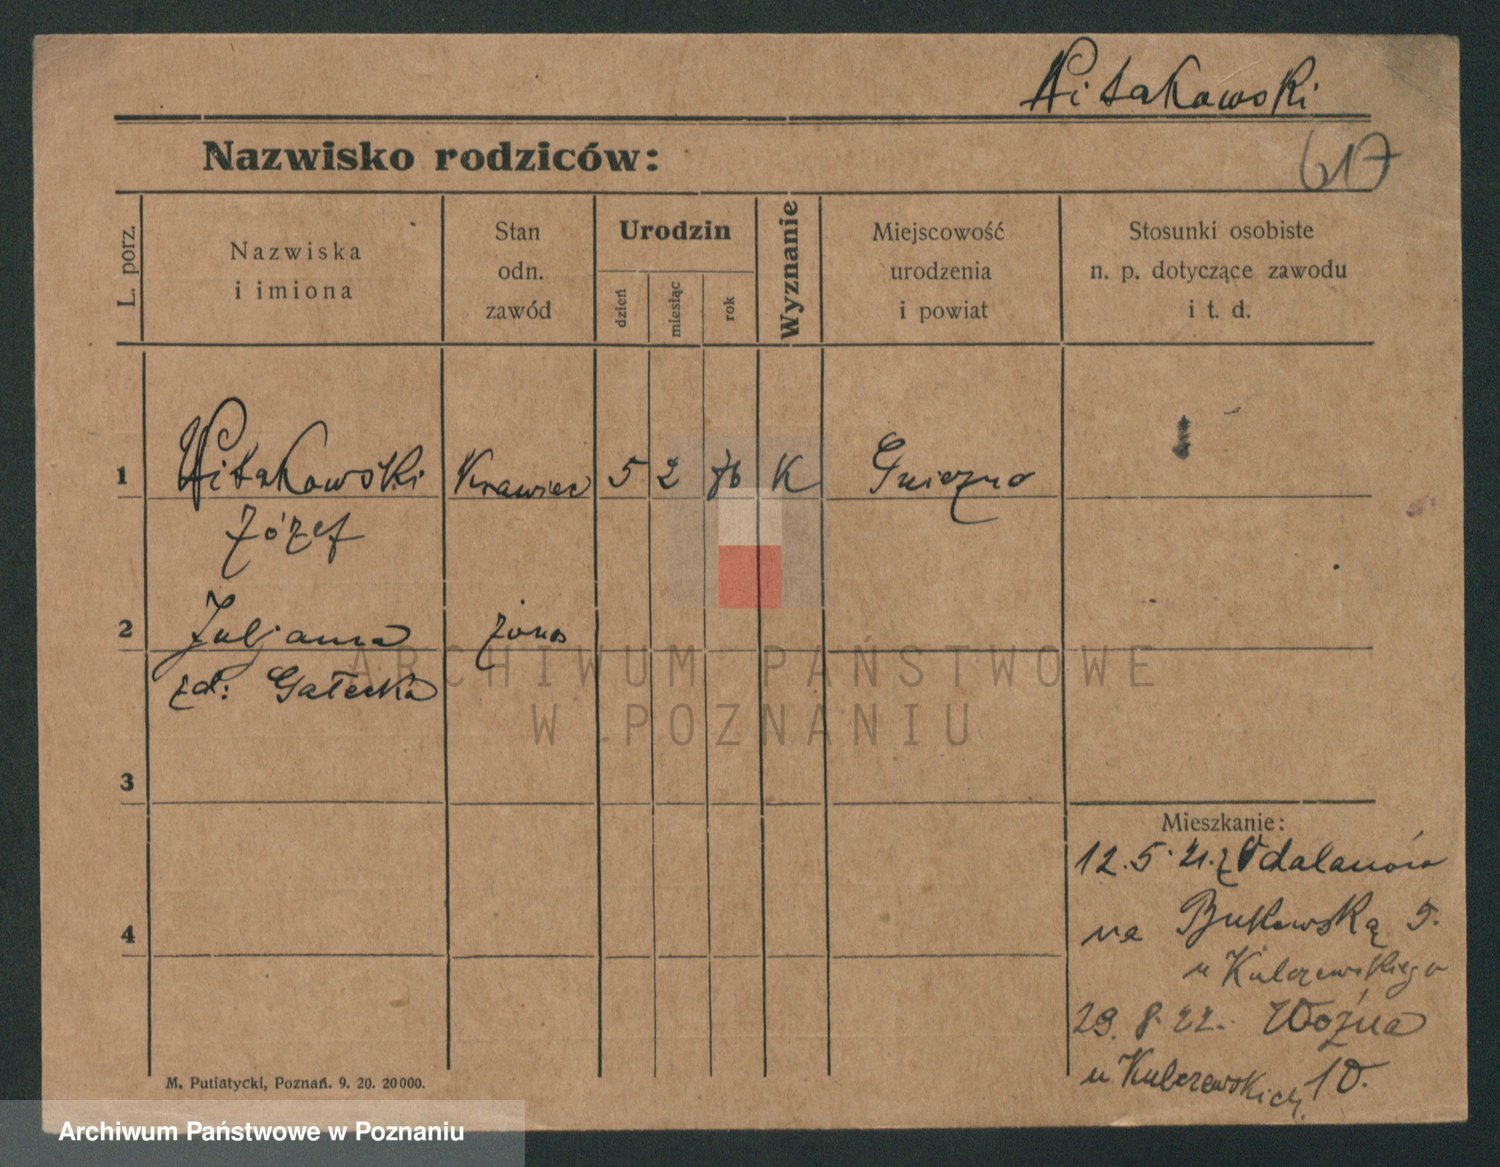 Witakowski
617
Nazwisko rodziców:
L. porz.
Nazwiska
i imiona
Stan
odn.
zawód
Urodzin
dzień
miesiąc
rok
Wyznanie
Miejscowość
urodzenia
i powiat
Stosunki osobiste
n. p. dotyczące zawodu
i t. d.
1 Witakowski Krawiec 5 2 76 K Gniezno
Józef
2 Juljanna żona
zd: Gałecka
3
4
Mieszkanie:
12.5.21. z Odalanów
na Bukowską 5.
u Kulczewskiego
29.8.22. Woźna
u Kulczewskich 10.
M. Putiatycki, Poznań. 9. 20. 20000.
ARCHIWUM PAŃSTWOWE
W POZNANIU
Archiwum Państwowe w Poznaniu